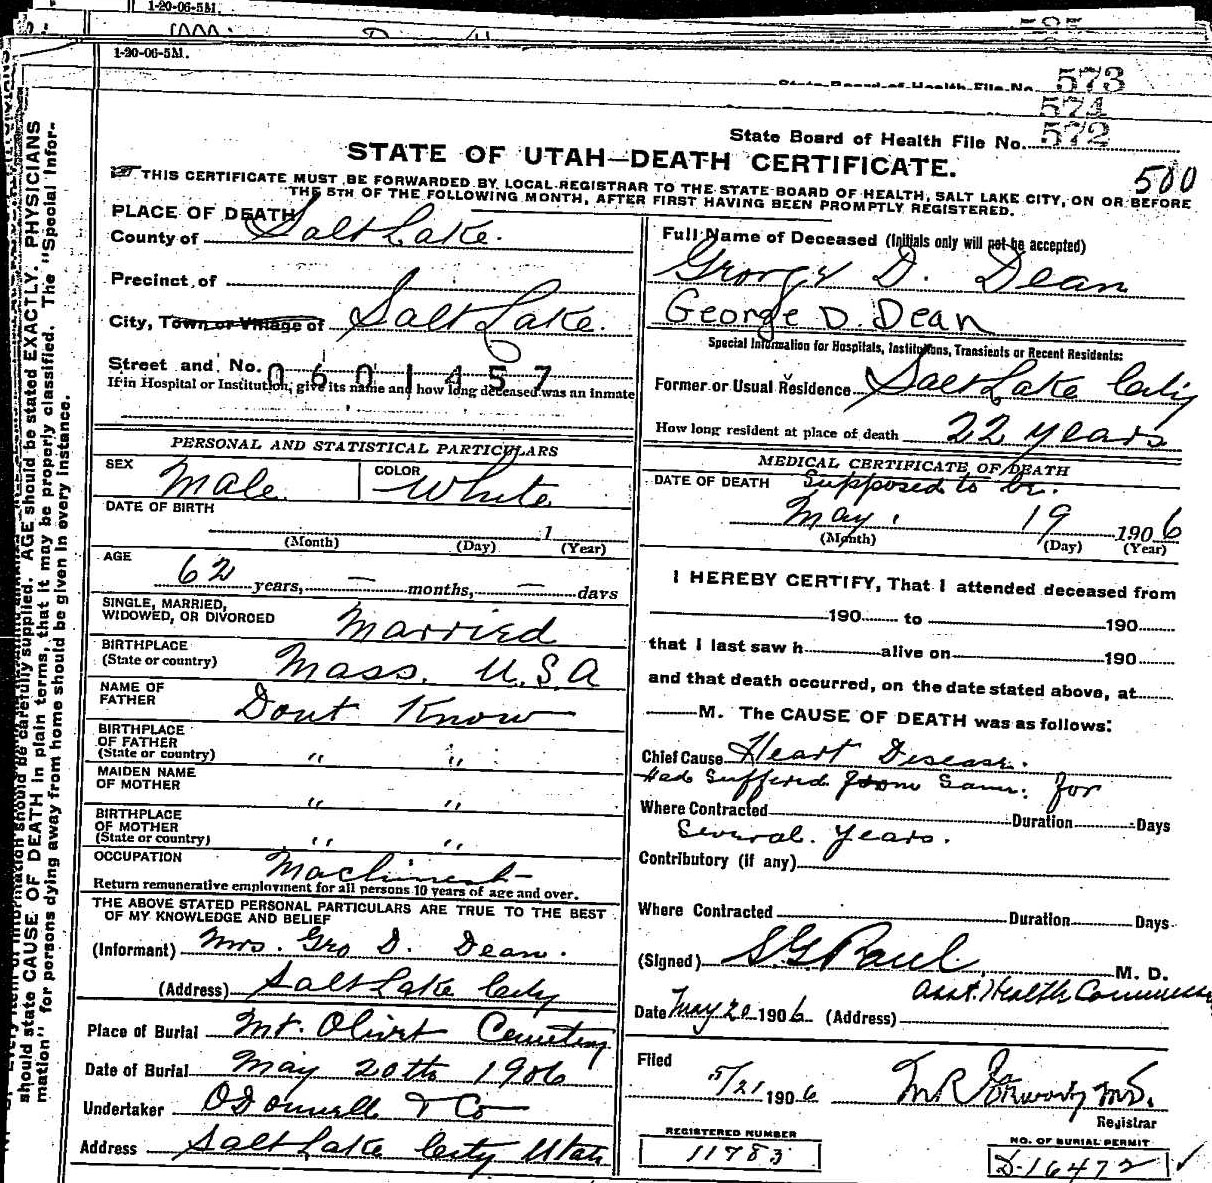 1-20-06-5M.
1-20-06-5M.
State Board of Health File No. 573
574
State Board of Health File No. 572
STATE OF UTAH—DEATH CERTIFICATE.
500
THIS CERTIFICATE MUST BE FORWARDED BY LOCAL REGISTRAR TO THE STATE BOARD OF HEALTH, SALT LAKE CITY, ON OR BEFORE
THE 5TH OF THE FOLLOWING MONTH, AFTER FIRST HAVING BEEN PROMPTLY REGISTERED.
PLACE OF DEATH
County of Salt Lake.
Precinct of
City, Town or Village of Salt Lake.
Street and No. 0601457
If in Hospital or Institution, give its name and how long deceased was an inmate
PERSONAL AND STATISTICAL PARTICULARS
SEX Male COLOR White
DATE OF BIRTH
1
(Month) (Day) (Year)
AGE
62 years, — months, — days
SINGLE, MARRIED,
WIDOWED, OR DIVORCED Married
BIRTHPLACE
(State or country) Mass. U.S.A
NAME OF
FATHER Dont Know
BIRTHPLACE
OF FATHER
(State or country) " "
MAIDEN NAME
OF MOTHER " "
BIRTHPLACE
OF MOTHER
(State or country) " "
OCCUPATION Machinest
Return remunerative employment for all persons 10 years of age and over.
THE ABOVE STATED PERSONAL PARTICULARS ARE TRUE TO THE BEST
OF MY KNOWLEDGE AND BELIEF
(Informant) Mrs. Geo D. Dean.
(Address) Salt Lake City
Place of Burial Mt. Olivet Cemetery
Date of Burial May 20th 1906
Undertaker O Donnell & Co
Address Salt Lake City Utah
Full Name of Deceased (Initials only will not be accepted)
George D. Dean
George D. Dean
Special Information for Hospitals, Institutions, Transients or Recent Residents:
Former or Usual Residence Salt Lake City
How long resident at place of death 22 years
MEDICAL CERTIFICATE OF DEATH
DATE OF DEATH Supposed to be.
May. 19 1906
(Month) (Day) (Year)
I HEREBY CERTIFY, That I attended deceased from
190 to 190
that I last saw h alive on 190
and that death occurred, on the date stated above, at
M. The CAUSE OF DEATH was as follows:
Chief Cause Heart Disease.
Had Suffered from Same. for
Where Contracted Duration Days
Several. years.
Contributory (if any)
Where Contracted Duration Days
(Signed) S.G. Paul, M. D.
Asst. Health
Date May 20 1906 (Address)
Filed
5/21 1906
M.D.
Registrar
REGISTERED NUMBER
11783
NO. OF BURIAL PERMIT
D-16472
should state CAUSE OF DEATH in plain terms, that it may be properly classified. The "Special Infor-
mation" for persons dying away from home should be given in every instance.